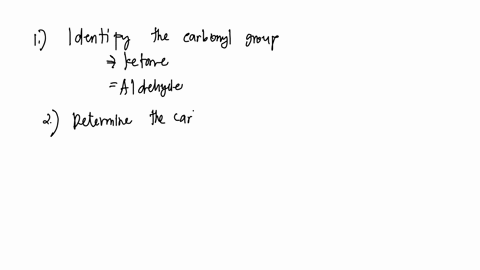 1.) Identipy the carbonyl group
⇒ ketone
= Aldehyde
2.) Determine the car